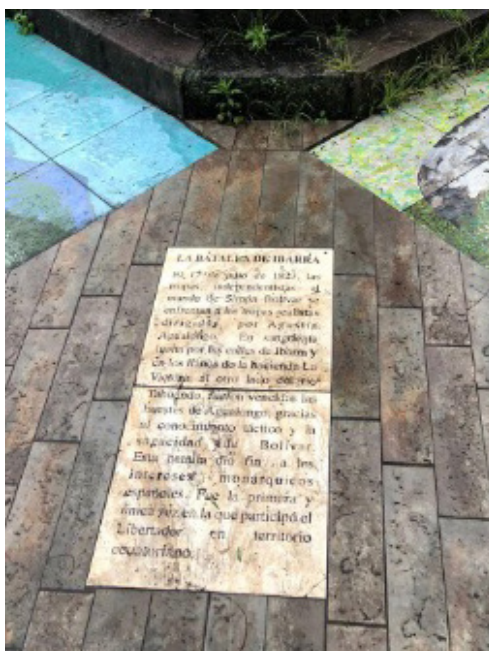 LA BATALLA DE IBARRA
El 17 de julio de 1823, las
tropas independentistas al
mando de Simón Bolívar se
enfrentan a las tropas realistas
dirigidas por Agustín
Agualongo. En sangrienta
lucha por las calles de Ibarra y
en los llanos de la hacienda La
Victoria al otro lado del río
Tahuando, fueron vencidas las
huestes de Agualongo, gracias
al conocimiento táctico y la
sagacidad de Bolívar.
Esta batalla dio fin a los
intereses monárquicos
españoles. Fue la primera y
única vez en la que participó el
Libertador en territorio
ecuatoriano.